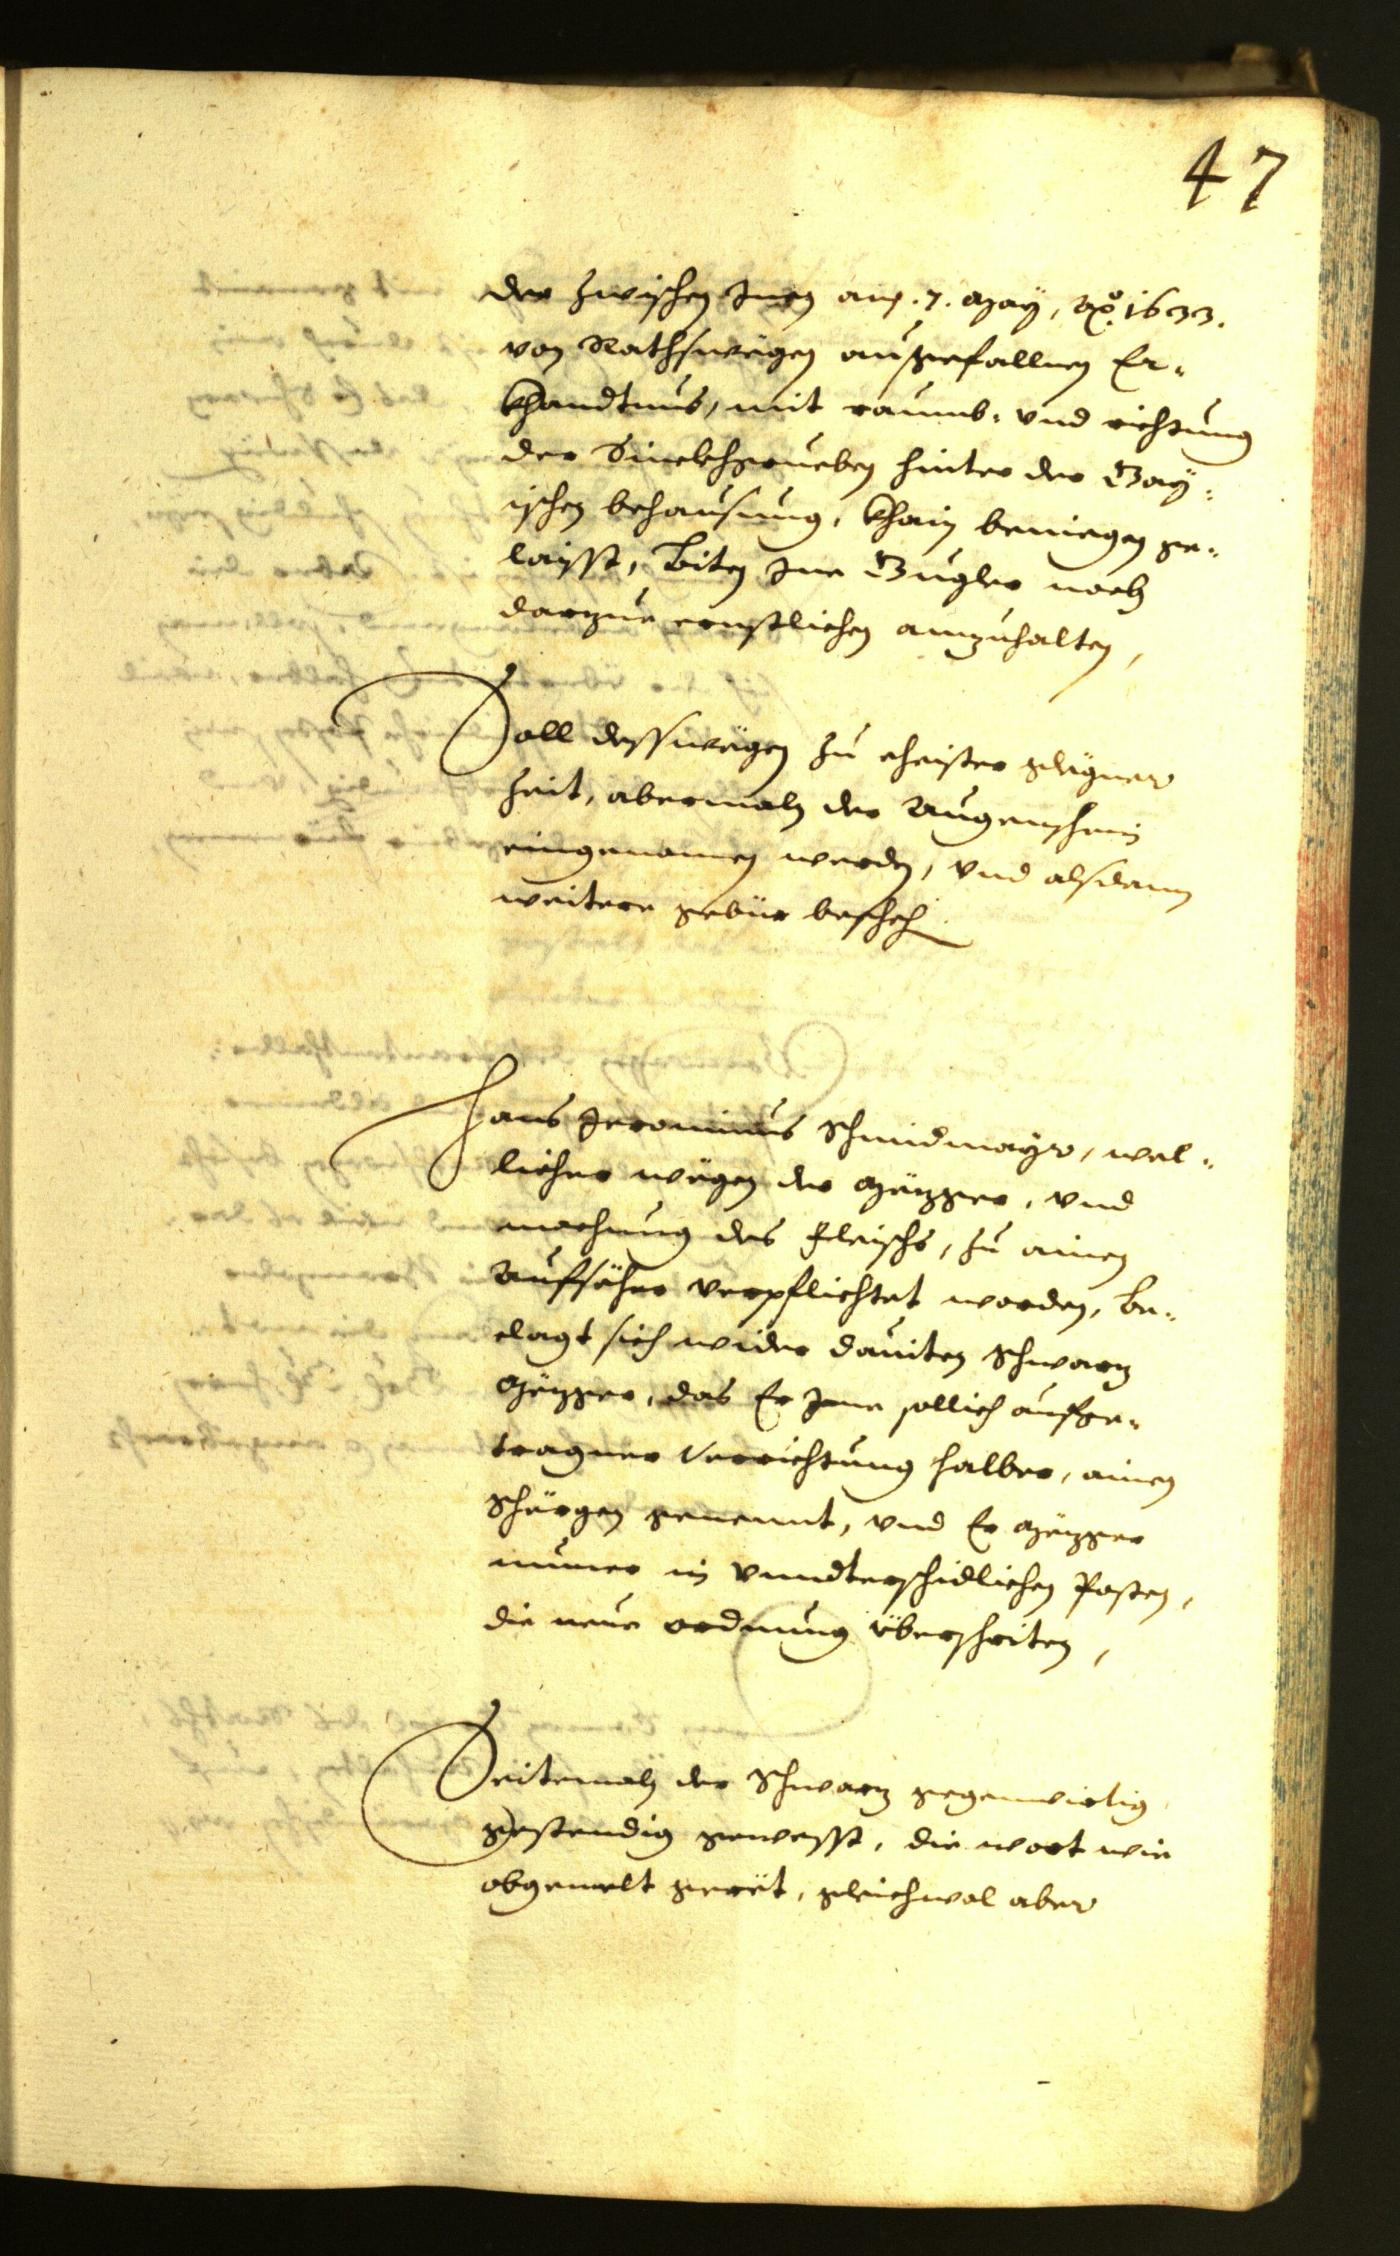 47
der zwischen Inen am .7. May, Ao. 1633.
von Rathswegen ausgefallnen Er-
khandtnus, mit raumb- und richtung
der hinter der Bay-
ischen behausung, khain beniegen ge-
laisst, Biten Ine Bugler noch
darzue ernstlichen anzuhalten,
Soll desswegen zu ehister glegner
Zeit, abermaln der Augenschein
eingenomen werden, und alsdann
weitere gebür besche͠h
Hans Jeronimus Schmidmayr, wel-
licher wegen der Mezger, und
machung des fleischs, zu ainen
Aufseher verpflichtet worden, be-
clagt sich wider Daviten Schwarz
Mezger, das Er Ime sollich aufge-
tragner Verrichtung halber, ainen
Schörgen genennt, und Er Mezger
numer in unndterschidlichen Posten,
die neue ordnung überschriten,
Seitemaln der Schwarz gegenwirtig
gestendig gewesst, die wort wie
obgemelt geret, gleichwol aber